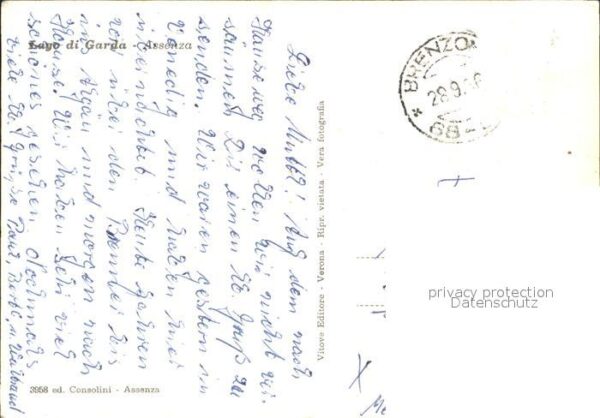 Lago di Garda - Assenza
Liebe Mutti! Auf dem nach
Hauseweg wollen wir nicht ver-
säumen Dir einen lb. Gruß zu
senden. Wir waren gestern in
Venedig und haben hier
übernachtet. Heute fahren
wir über den Brenner bis
ins Allgäu und morgen nach
Hause. Wir haben sehr viel
schönes gesehen. Nochmals
viele lb. Grüsse Paul,
3958 ed. Consolini - Assenza
Vitove Editore - Verona - Ripr. vietata - Vera fotografia
BRENZO
28.9.
privacy protection
Datenschutz